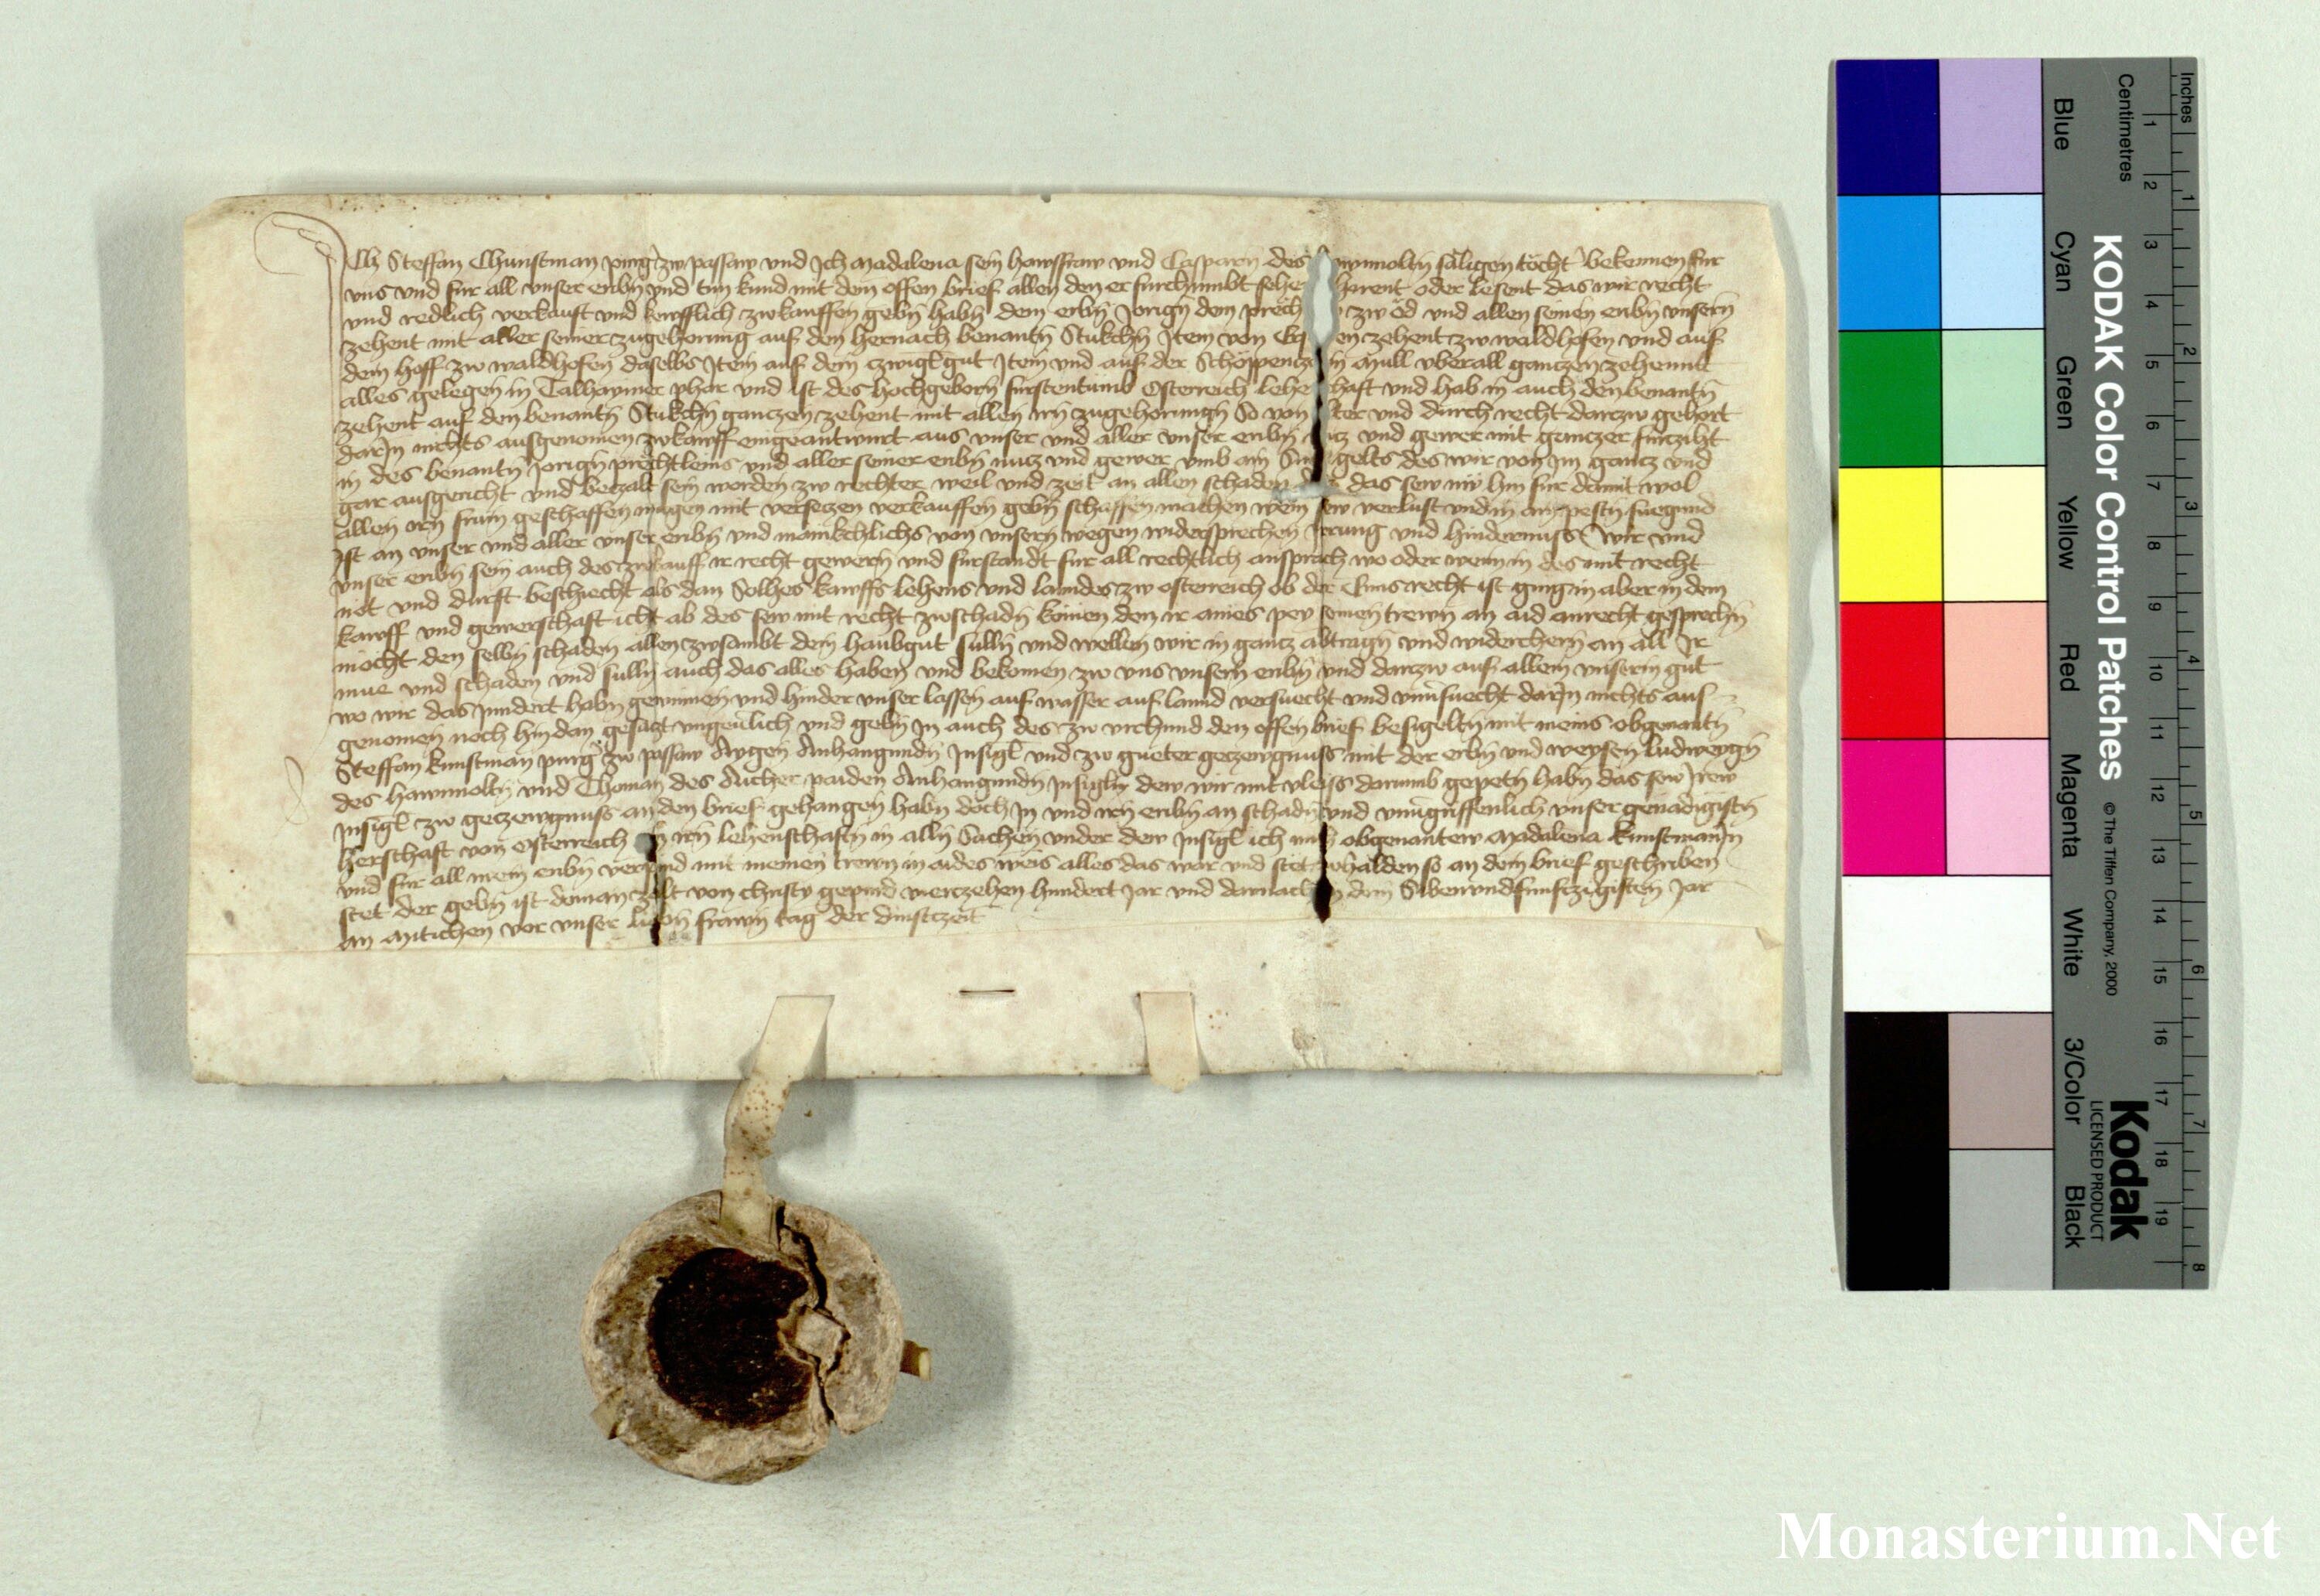 Ich Steffan Chunstman purger zw passaw und Ich Madalena sein hawsfraw und Casparen des saligen tocht bekennen fur
uns und fur all unser erbn und tun kund mit dem offen brief allen den er furchumbt oder lesent das wir recht
und redlich verkauft und kewfflich zwkauffen gebn habn dem erbn Jorign dem zw öd und allen seinen erbn unsern
zehent mit aller seiner zugehorung auf den hernach benantn Stukchn Item von zehent zw waldhofen und auf
dem hoff zw waldhofen daselbs Item auf dem gut Item und auf der Mull uberall ganczen zehennt
alles gelegen in Talhaymer phar und ist des hochgeborn furstentumb Osterreich und hab in auch den benantn
zehent auf den benantn Stukchn ganczen zehent mit allen irn zugehorungn So von und durch recht darzw gehort
darIn nichts ausgenomen zwkawff eingeantwurt aus unser und aller unser erbn und gewer mit ganczer furcziht
in des benantn Jorign prechtleins und aller seiner erbn nucz und gewer umb ain gelts des wir von Im gancz und
gar ausgericht und beczalt sein worden zw rechter weil und zeit an allen schaden das sew nw hin fur damit wol
allen irn frum geschaffen mugen mit verseczen verkauffen gebn schaffen machen wem sew verlust und in am pestn fuegund
Ist an unser und aller unser erbn und manikchlichs von unsern wegen widersprechen Irrung und hindernuss Wir und
unser erbn sein auch des zwkauff ir recht gewern und furstandt fur all rechtlich ansprach wo oder wenn in des mit recht
not und durft beschiecht als dan Solhes kawffs lehens und lanndes zw osterreich ob der Enns recht ist ging in aber in dem
kawff und gewerschaft icht ab des sew mit recht zwschadn komen dem ir aines pey seinen trewn an aid anrecht gesprechn
mocht den selbn schaden allen zwsambt dem haubgut sulln und wellen wir in gancz abtragn und widerchern an all Ir
mue und schaden und sulln auch das alles haben und bekomen zw uns unsern erbn und darzw auf allem unserm gut
wo wir das Inndert habn gewinnen und hinder unser lassen auf wasser auf lannd versuecht und unversuecht darIn nichts aus
genomen noch hindan geseczt ungeverlich und gebn In auch des zw urchund den offen brief besigeltn mit meins obgenantn
Steffan kunstman purger zw passaw Aygen Anhangundn Insigl und zw gueter geczewgnuss mit der erbn und weysen ludweygn
des hawnnoltn und Thoman des Aicher paiden Anhangundn Insigln dew wir mit vleiss darumb gepetn habn das sew Irew
Insigl zw geczewgnuss an den brief gehangen habn doch In und irn erbn an schadn und unnugriffenlich unser genadigistn
herschaft von Osterreich irn lehenschaftn in alln Sachen under dew Insigl ich obgenantew Madalena kunstmanIn
und fur all mein erbn verpind mit meinen trewn in aides weis alles das war und stet zwhalden so an dem brief geschriben
stet der gebn ist do man zalt von christy gepurd vierczehen hundert Jar und darnach in dem Sibenundfunfczigisten Jar
An Mitichen vor unser liebn frawn tag der dinstczeit
KODAK Color Control Patches
© The Tiffen Company, 2000
Kodak
LICENSED PRODUCT
Blue Cyan Green Yellow Red Magenta White 3/Color Black
Centimetres 1 2 3 4 5 6 7 8 9 10 11 12 13 14 15 16 17 18 19
Inches 1 2 3 4 5 6 7 8
Monasterium.Net